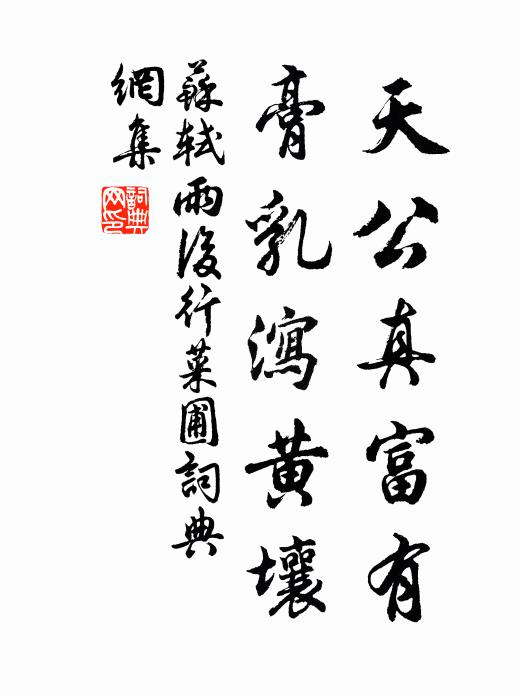 天公真富有
膏乳瀉黄壤
蘇軾雨後行菜圃詞典
網集
詞典網印